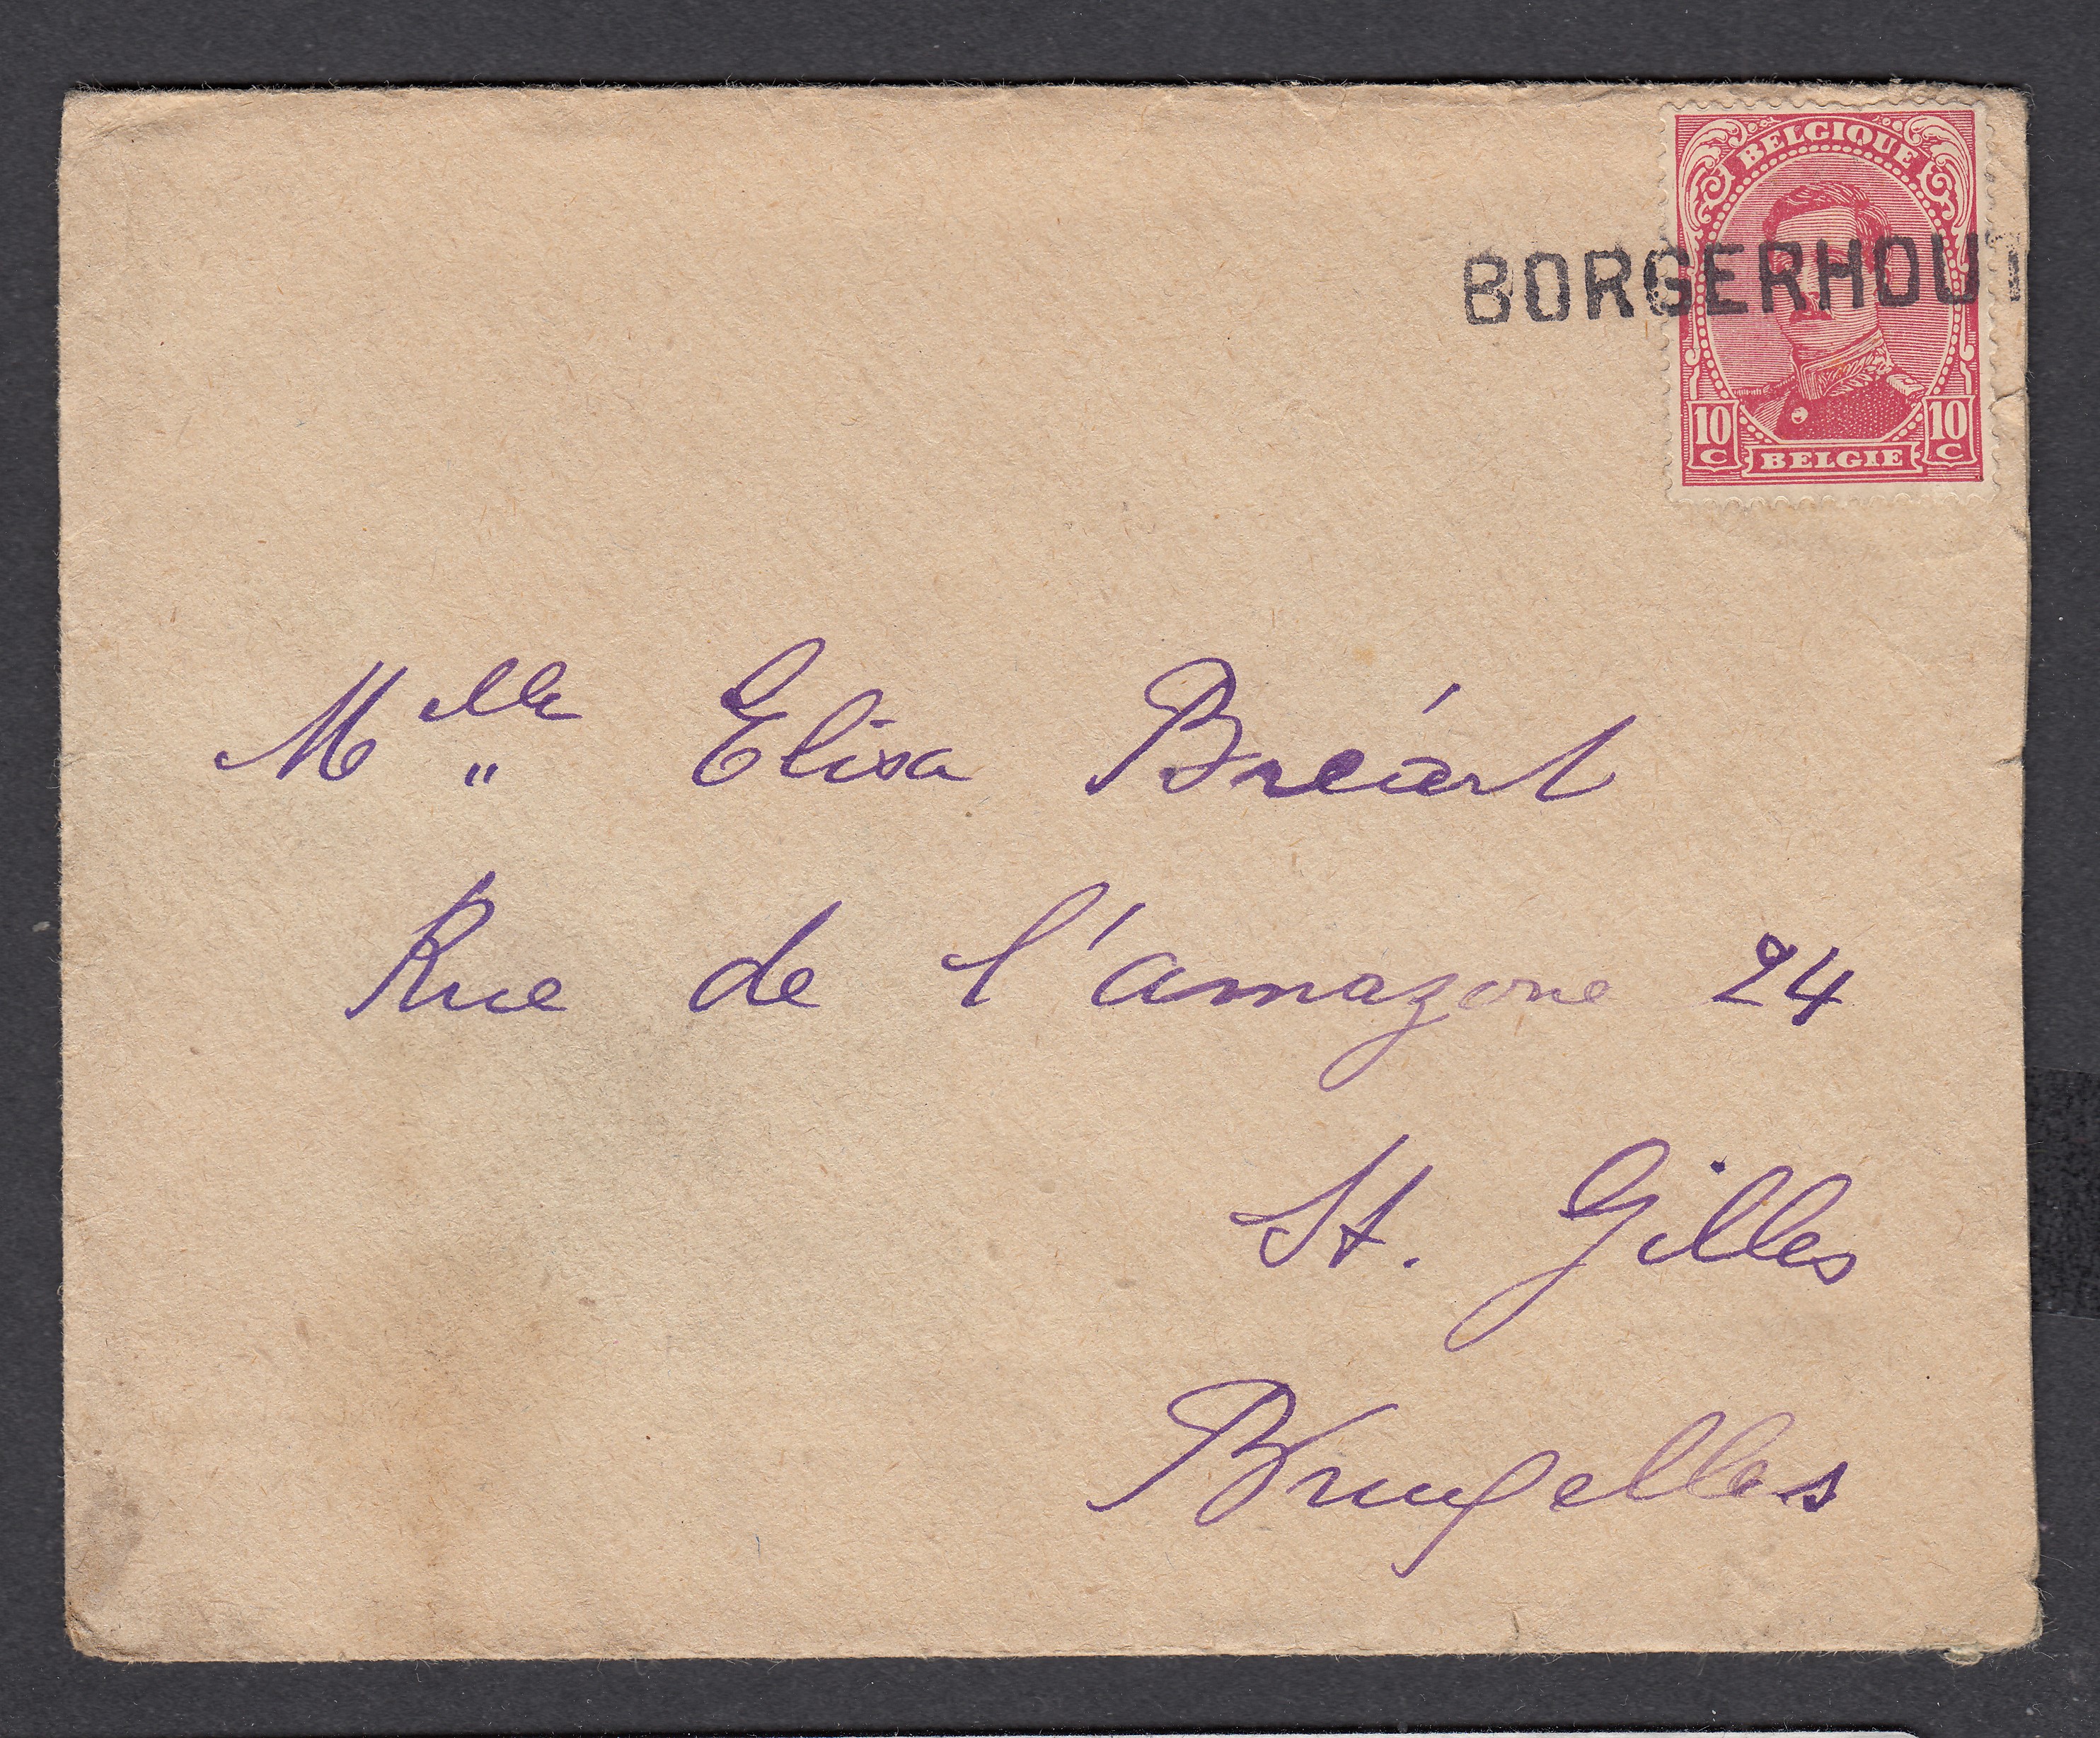 BELGIQUE
BORGERHOUT
10 C BELGIE 10 C
Mlle Elisa Bréart
Rue de l'amazone 24
St. Gilles
Bruxelles